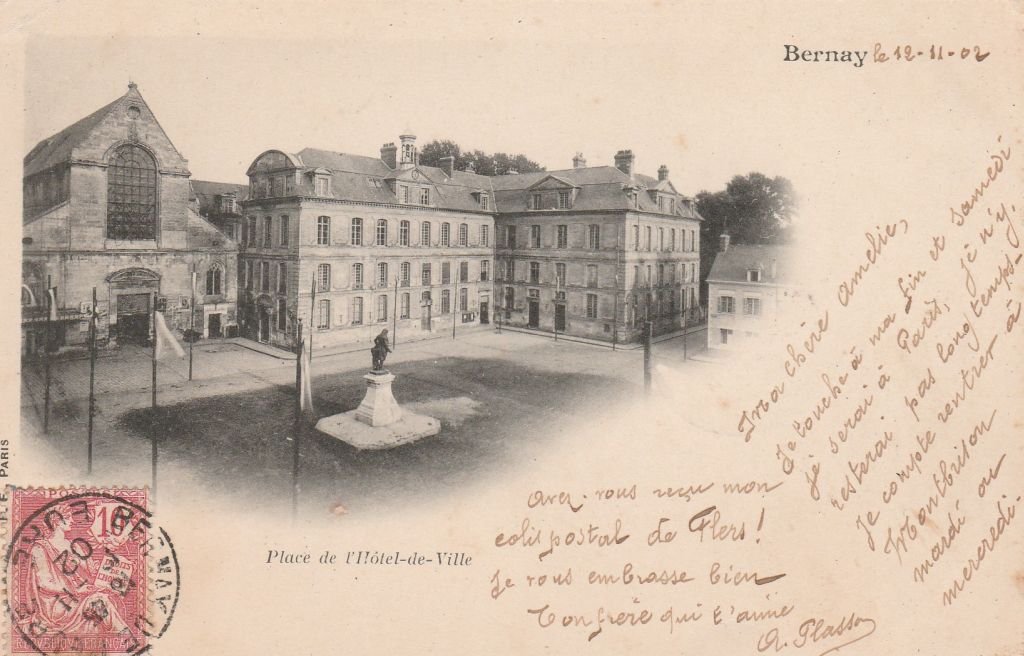 Bernay le 12-11-02
Ma chère amelie,
Je touche à ma fin et samedi
je serai à Paris, je n'y
resterai pas longtemps-
Je compte rentrer à
Montbrison
mardi ou
mercredi.
avez-vous reçu mon
colis postal de Flers!
Je vous embrasse bien
Ton frère qui t'aime
A. Plasson
Place de l'Hôtel-de-Ville
PARIS
POSTES
10
BERNAY
EURE
02
REPUBLIQUE FRANÇAISE